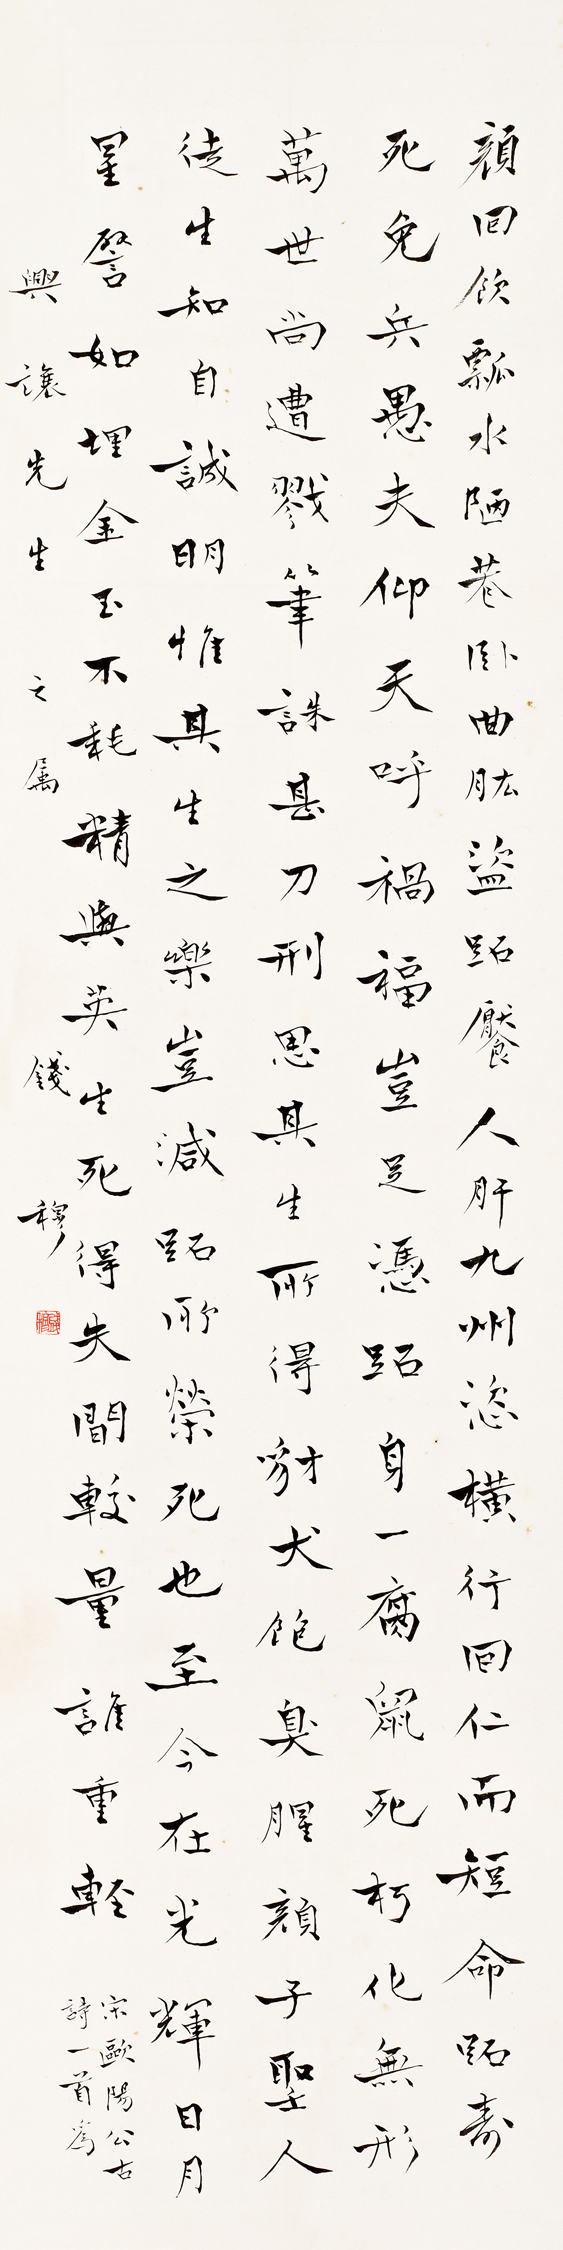 顔回飲瓢水陋巷卧曲肱盜跖饜人肝九州恣橫行回仁而短命跖壽
死免兵愚夫仰天呼禍福豈足憑跖身一腐鼠死朽化無形
萬世尚遭戮筆誅甚刀刑思其生所得豺犬飽臭腥顔子聖人
徒生知自誠明惟其生之樂豈減跖所榮死也至今在光輝日月
星譬如埋金玉不耗精與英生死得失間較量誰重輕
宋歐陽公古
詩一首爲
興讓先生之属
錢穆